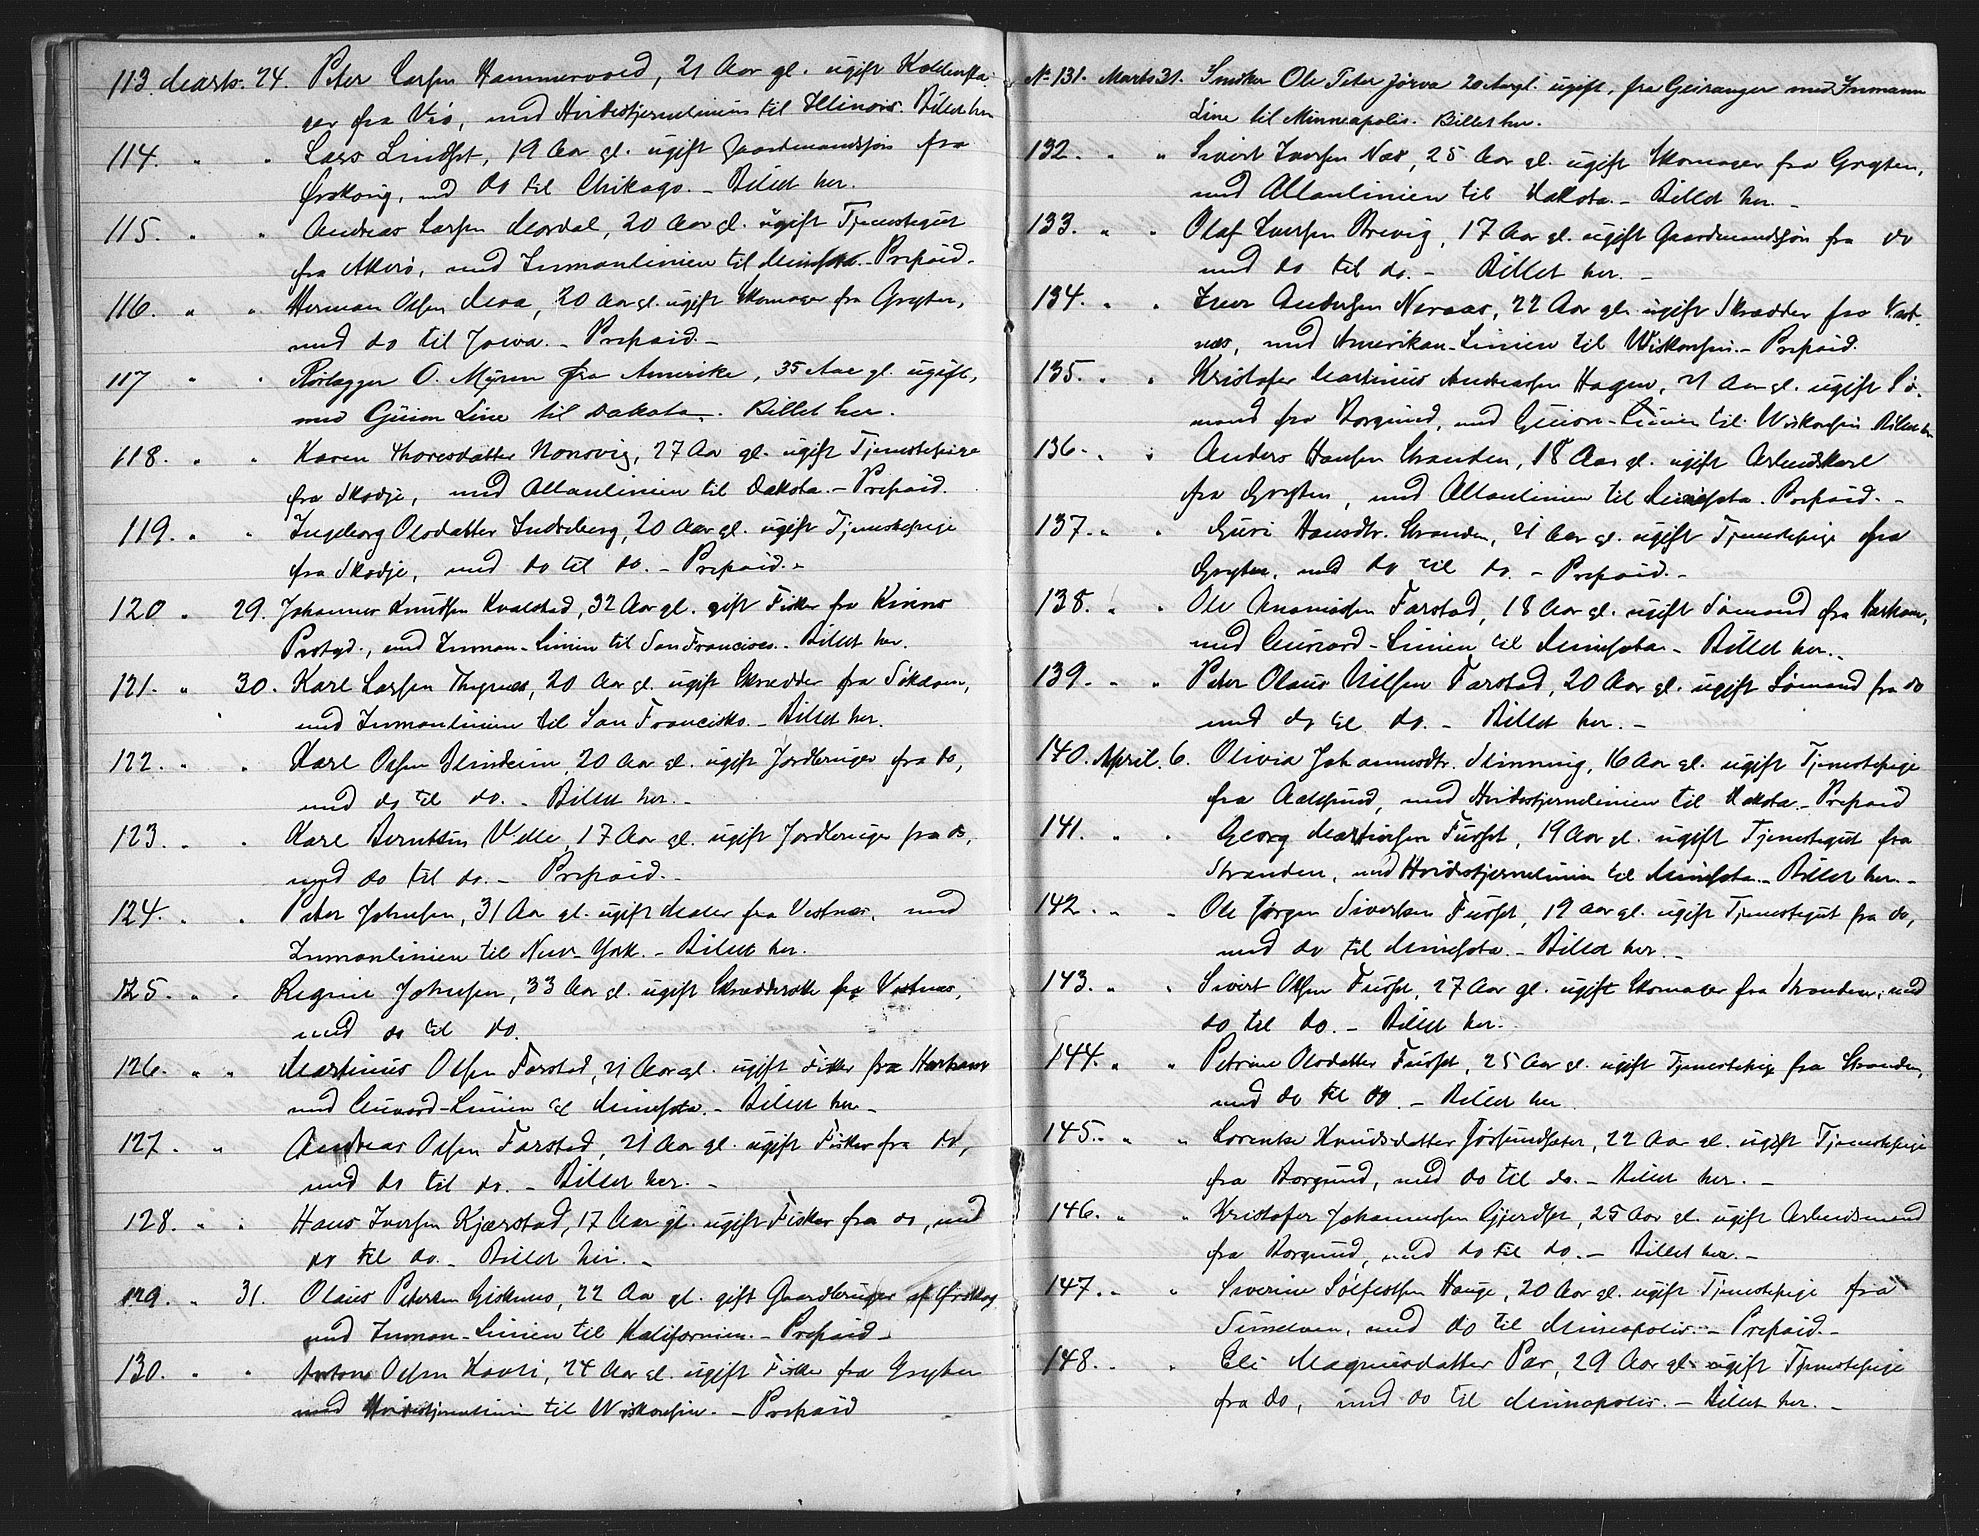 113. Marts. 24. Peter Larsen Hammervold, 21 Aar gl. ugift
ger fra Veø, med Hvidestjernelinien til Illinois. Billet her
114. " " Lars Lindset, 19 Aar gl. ugift Gaardmandssøn fra
Ørskoug, md do til Chikago. - Billet her.
115. " " Andreas Larsen Mordal, 20 Aar gl. ugift Tjenestegut
fra Akerø, med Inmanlinien til Minesota - Prepaid.
116. " " Herman Olsen Moa, 20 Aar gl. ugift Skomager fra Gryten,
med do til Jowa. - Prepaid. -
117 " " Rørlægger O. Myren fra Amerika, 35 Aar gl. ugift,
med Guion Line til Dakota. Billet her.
118. " " Karen Thoresdatter Nonsvig, 27 Aar gl. ugift Tjenestepige
fra Skodje, med Allanlinien til Dakota. - Prepaid.
119. " " Ingeborg Olsdatter Indreberg, 20 Aar gl. ugift Tjenestepige
fra Skodje, med do til do. - Prepaid. -
120 " 29. Johannes Knudsen Kvalstad, 32 Aar gl. gift Fisker fra Kinns
Prstgd., med Inman-Linien til San Francisco. - Billet her.
121. " 30. Karl Larsen Thynes, 20 Aar gl. ugift Skrædder fra Søkdom,
med Inmanlinien til San Francisko - Billet her.
122. " " Karl Olsen Blindeim, 20 Aar gl. ugift Jordbruger fra do,
med do til do. - Billet her. -
123. " " Karl Berntsen Velle, 17 Aar gl. ugift Jordbruger fra do,
med do til do. - Prepaid. -
124. " " Peter Johnsen, 31 Aar gl. ugift Maler fra Vestnes, med
Inmanlinien til New-York. - Billet her.
125. " " Regine Johnsen, 33 Aar gl. ugift fra Vestnes,
med do til do.
126. " " Martinus Olsen Farstad, 21 Aar gl. ugift Fisker fra Harham
med Cunard-Linien til Minesota. - Billet her -
127. " Andreas Olsen Farstad, 21 Aar gl. ugift Fisker fra do,
med do til do. - Billet her. -
128. " " Hans Iversen Kjærstad, 17 Aar gl. ugift Fisker fra do, med
do til do. - Billet her. -
129. " 31. Olaus Petersen Giskenes, 22 Aar gl. gift Gaardbruger af Ørskog
med Inman-Linien til Kalifornien. - Prepaid -
130. " " Anton Olsen Havli, 24 Aar gl. ugift Fisker fra Gryten
med Hvidestjernelinien til Wiskonsin. - Prepaid
No 131. Marts 31. Snikker Ole Peter Jørva 20 Aar gl. ugift, fra Geiranger med Inmann
Line til Minneapolis. Billet her.
132. " " Sivert Iversen Næs, 25 Aar gl. ugift Skomager fra Gryten,
med Allanlinien til Dakota. - Billet her. -
133. " " Olaf Iversen Brevig, 17 Aar gl. ugift Gaardmandssøn fra do
med do til do. - Billet her. -
134. " " Iver Andersen Neraas, 22 Aar gl. ugift Skrædder fra Vest-
nes, med Amerikan-Linien til Wiskonsin. - Prepaid.
135. " " Kristofer Martinus Andreassen Hagen, 21 Aar gl. ugift Sø-
mand fra Borgund, med Guion-Linien til Wiskonsin Billet her
136. " " Anders Hansen Stranden, 18 Aar gl. ugift Arbeidskarl
fra Gryten, med Allanlinien til Minesota. Prepaid. -
137. " " Guri Hansdtr. Stranden, 21 Aar gl. ugift Tjenestepige fra
Gryten, med do til do. - Prepaid. -
138. " " Ole Ananiasen Farstad, 18 Aar gl. ugift Sømand fra Harham,
med Cunard-Linien til Minesota - Billet her. -
139. " " Peter Olaus Nilsen Farstad, 20 Aar gl. ugift Sømand fra do
med do til do. - Billet her. -
140. April. 6. Olivia Johannesdtr. Slinning, 16 Aar gl. ugift Tjenestepige
fra Aalesund, med Hvidestjernelinien til Dakota - Prepaid
141. " " Georg Martinsen Furset, 19 Aar gl. ugift Tjenestegut fra
Stranden, med Hvidestjernelinien til Minesota. - Billet her. -
142. " " Ole Jørgen Sivertsen Furset, 19 Aar gl. ugift Tjenestegut fra do,
med do til Minesota. - Billet her. -
143. " " Sivert Olsen Furset, 27 Aar gl. ugift Skomager fra Stranden, med
do til do. - Billet her.
144. " " Petrine Olsdatter Furset, 25 Aar gl. ugift Tjenestepige fra Stranden,
med do til do. - Billet her
145. " " Lorentse Knudsdatter Jørsundsæter, 22 Aar gl. ugift Tjenestepige
fra Borgund, med do til do. - Billet her. -
146. " " Kristofer Johannesen Gjerdset, 25 Aar gl. ugift Arbeidsmand
fra Borgund, med do til do. - Billet her. -
147. " " Severine Sølfestsen Hauge, 20 Aar gl. ugift Tjenestepige fra
Sunelven, med do til Mineapolis. - Prepaid. -
148. " " Eli Magnusdatter Par, 29 Aar gl. ugift Tjenestepige
fra do, med do til Minnapolis. - Billet her. -